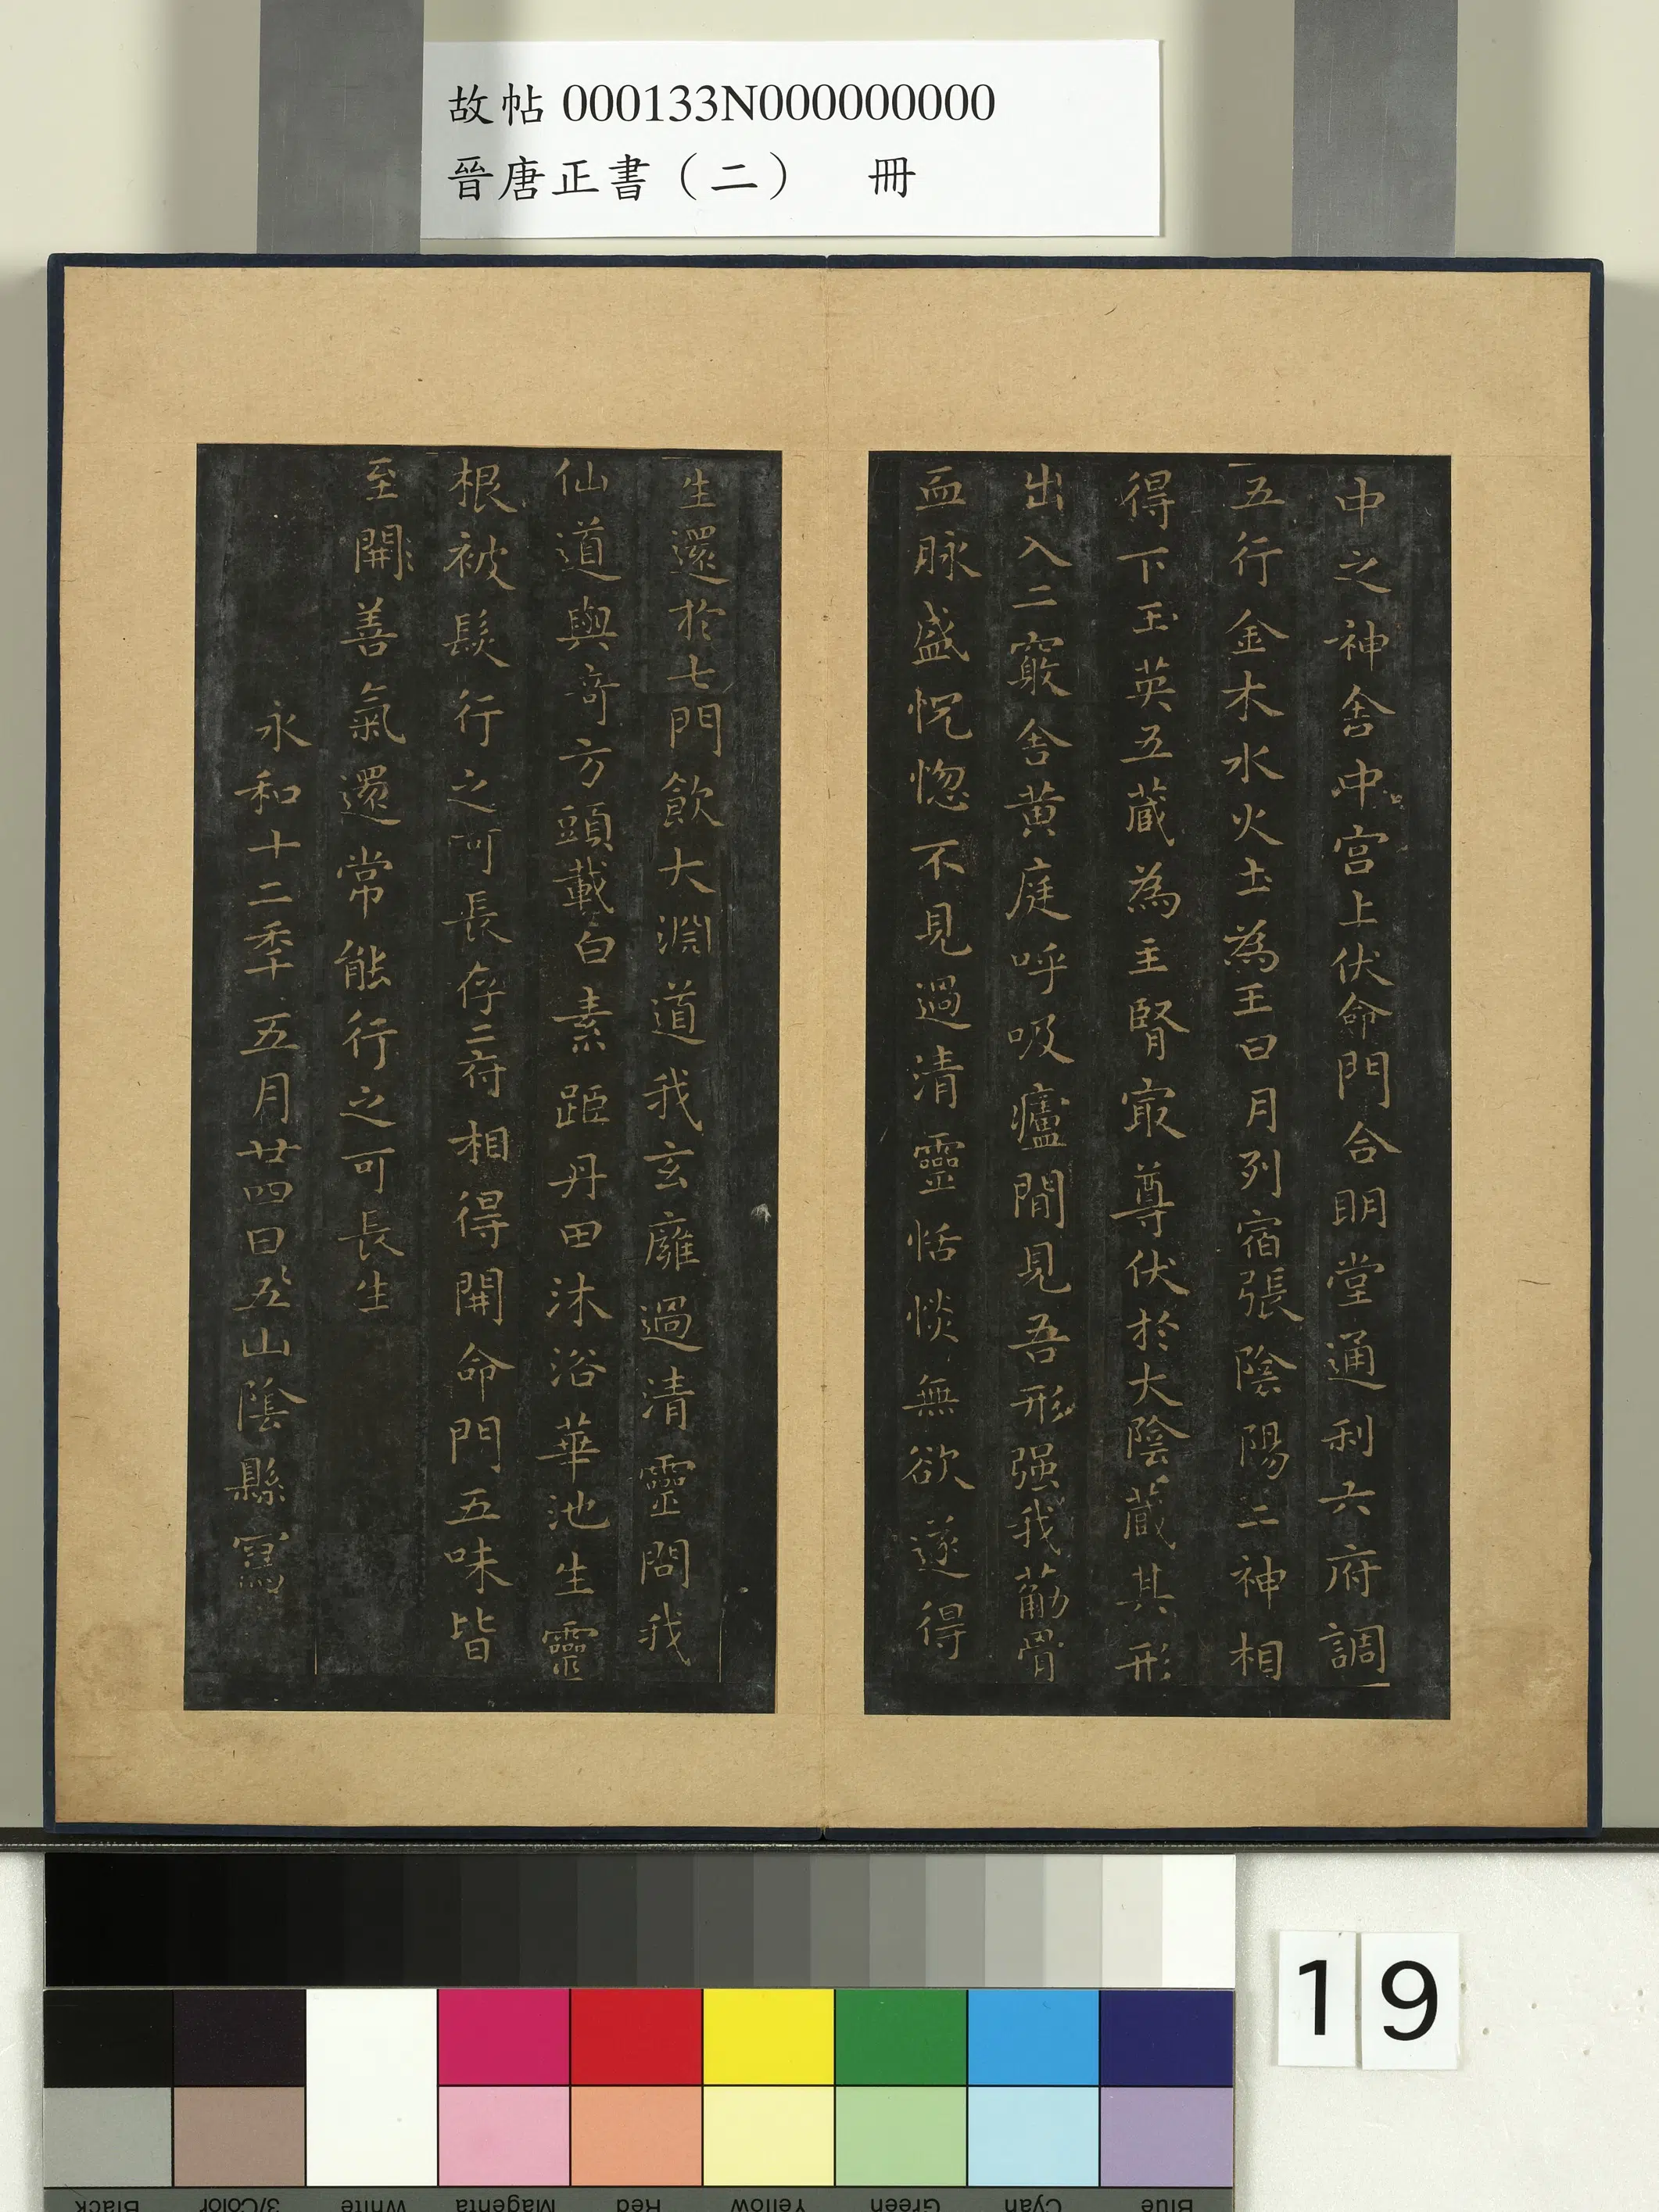 故帖 000133N000000000
晉唐正書（二） 冊
中之神舍中宮上伏命門合明堂通利六府調
五行金木水火土為王日月列宿張陰陽二神相
得下玉英五藏為主腎冣尊伏於大陰藏其形
出入二竅舍黃庭呼吸廬間見吾形强我筋骨
血脉盛怳惚不見過清靈恬惔無欲遂得
生還於七門飲大淵道我玄廱過清靈問我
仙道與奇方頭載白素距丹田沐浴華池生靈
根被髮行之可長存二府相得開命門五味皆
至開善氣還常能行之可長生
永和十二年五月廿四日五山陰縣寫
19
Black
3/Color
White
Magenta
Red
Yellow
Green
Cyan
Blue